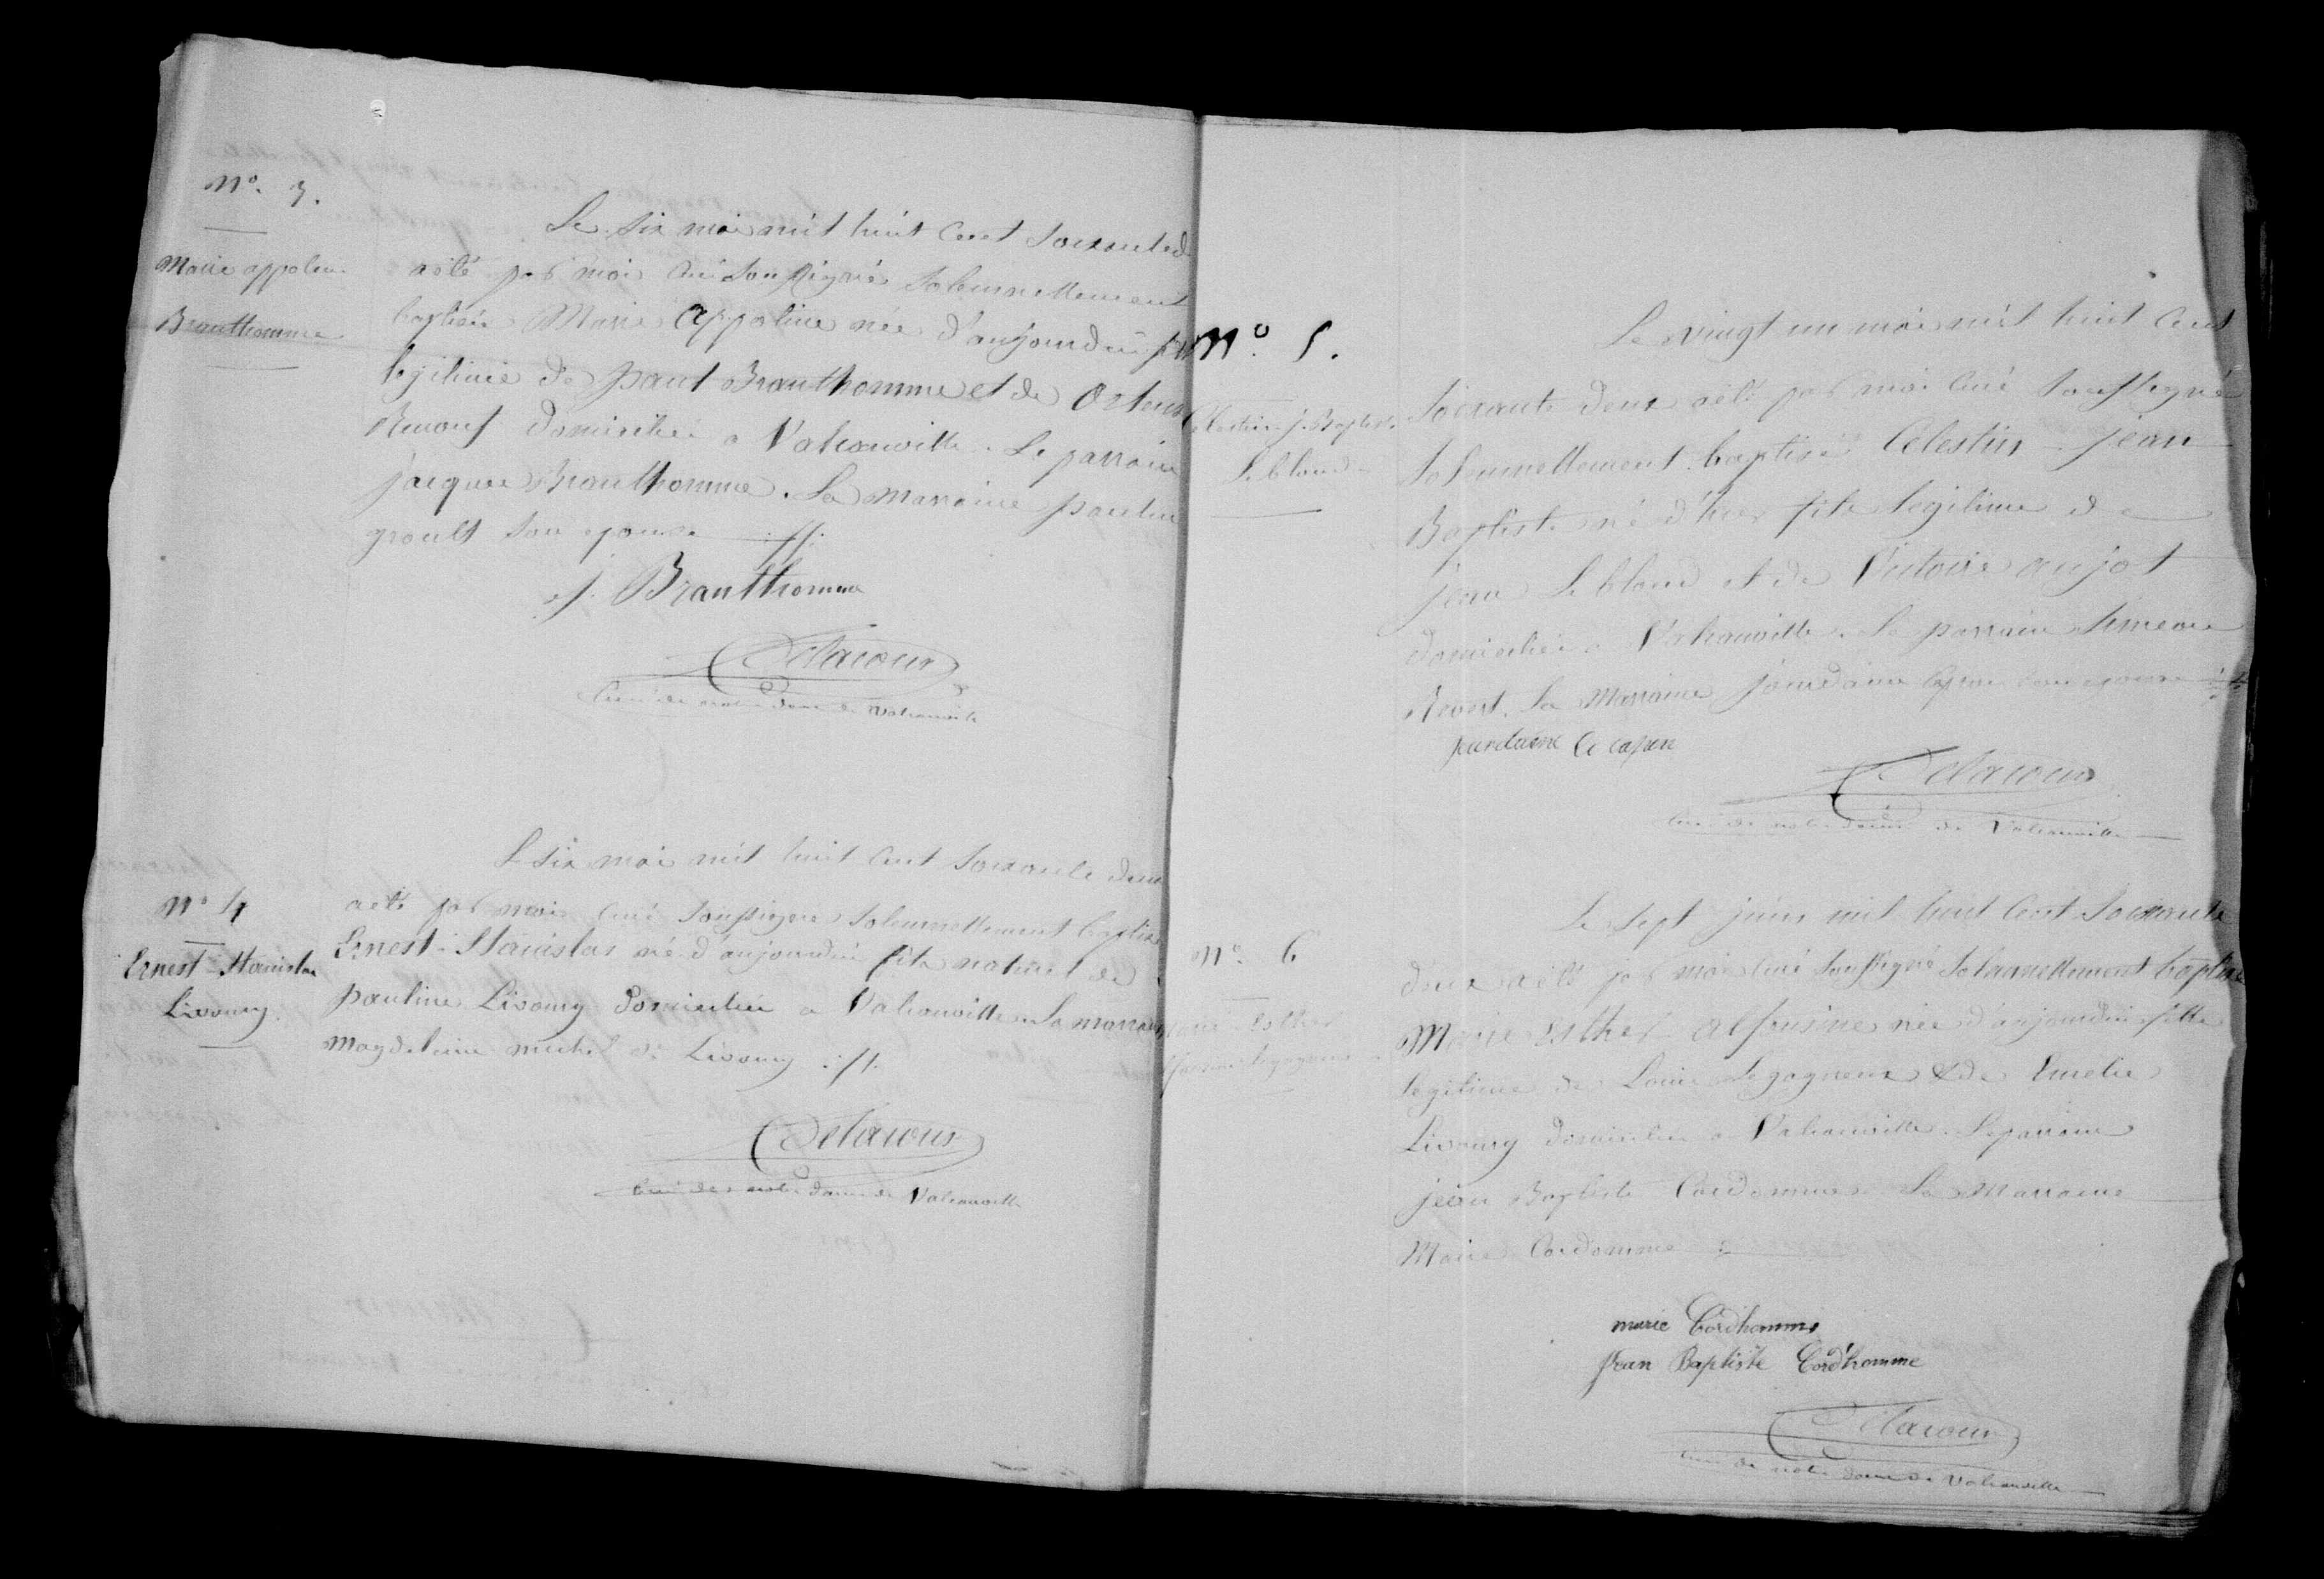 N°. 3.
Marie appolin.
Branthomme
Le six mai mil huit cent soixante d
a été par moi curé soussigné solemnellement
baptisée Marie Appoline née d'aujourdui fill
legitime de paul Branthomme et de Ortens
Renouf domicilié a Vatrauville. Le parrain
jacques Branthomme. La marraine paulin
groult son epouse
j. Branthomme
Delacour
Curé de notre dame de Vatrauville
N° 4
Ernest-Stanislas
Livoury.
Le six mai mil huit cent soixante deux
a été par moi curé soussigné solemnellement baptisé
Ernest-Stanislas né d'aujourdui fils naturel de
pauline Livoury domiciliée a Vatrauville. La marraine
Magdeleine michel Livoury
Delacour
Curé de notre dame de Vatrauville
N°. 5.
Celestin-j. Baptiste
Le blond
Le vingt un mai mil huit cent
soixante deux a été par moi curé soussigné
solemnellement baptisé Célestin-jean
Baptiste né d'hier fils legitime de
jean Le blond et de Victoire aujot
domicilié a Vatrauville. Le parrain Simeon
Revert. La Marraine jourdaine capon son epouse
jourdaine le capon
Delacour
Curé de notre dame de Vatrauville
N°. 6
Marie-Esther
Le sept juin mil huit cent soixante
deux a été par moi curé soussigné solemnellement baptisée
Marie Esther-alfonsine née d'aujourdui fille
legitime de Louis Legagneux & de Emelie
Livoury domiciliée a Vatrauville. Le parrain
jean Baptiste Cordomme. La Marraine
Marie Cordomme
marie Cordhomme
Jean Baptiste Cordhomme
Delacour
Curé de notre dame de Vatrauville